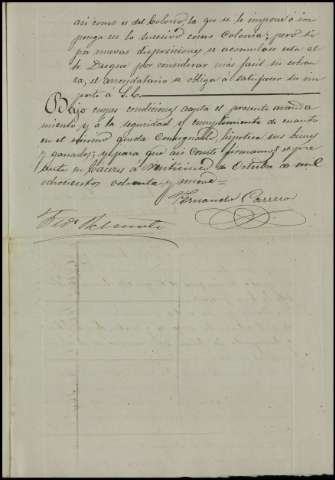 asi como es del Colono, la que se le impone ó im
ponga en lo sucesivo como Colonia; pero si p.r
nuevas disposiciones se acumulase esta al
de Duque por considerar más facil su cobran
za, el arrendatario se obliga á satisfacer su im
porte á S. E.
Bajo cuyas condiciones acepta el presente arrenda
miento, y á la seguridad y cumplimiento de cuanto
en el mismo queda consignado, hipoteca sus bienes
y ganados; y para que asi conste firmamos
en Cáceres á veinticinco de Octubre de mil
ochocientos ochenta y nueve=
Fernando Carrero